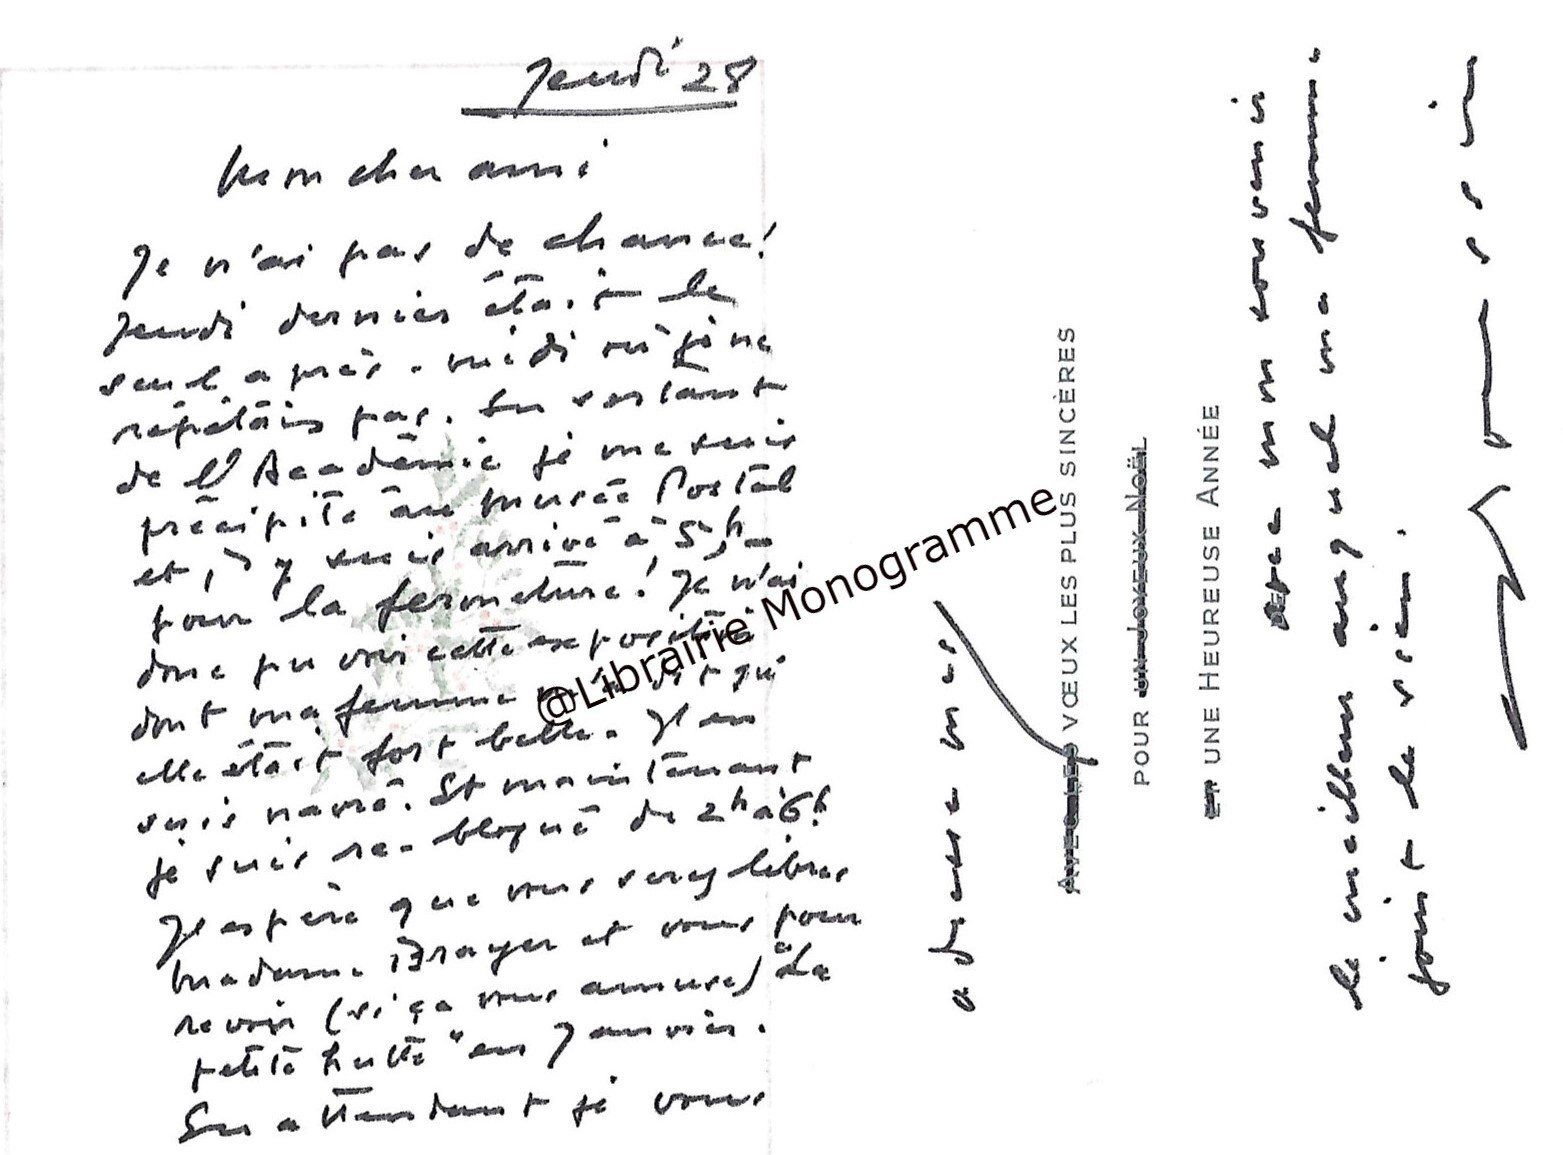 Jeudi 28
Mon cher ami
Je n'ai pas de chance!
Jeudi dernier était le
seul après-midi où je ne
répétais pas. En sortant
de l'Académie je me suis
précipité au musée Postal
et j'y suis arrivé à 5h-
pour la fermeture! Je n'ai
donc pu voir cette exposition
dont ma femme m'a dit qu'
elle était fort belle. J'en
suis navré. Et maintenant
je suis re-bloqué de 2h à 6h
J'espère que vous serez libres
Madame Brayer et vous pour
revoir (si ça vous amuse) "La
petite hutte" en Janvier.
En attendant je vous
adresse mes
AVEC LES VŒUX LES PLUS SINCÈRES
POUR UN JOYEUX NOËL
ET UNE HEUREUSE ANNÉE
avec mon souvenir
le meilleur auquel ma femme
joint le sien.
Roussin
@Librairie Monogramme